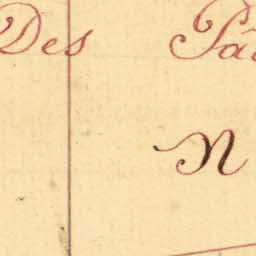 Des Pâ
N